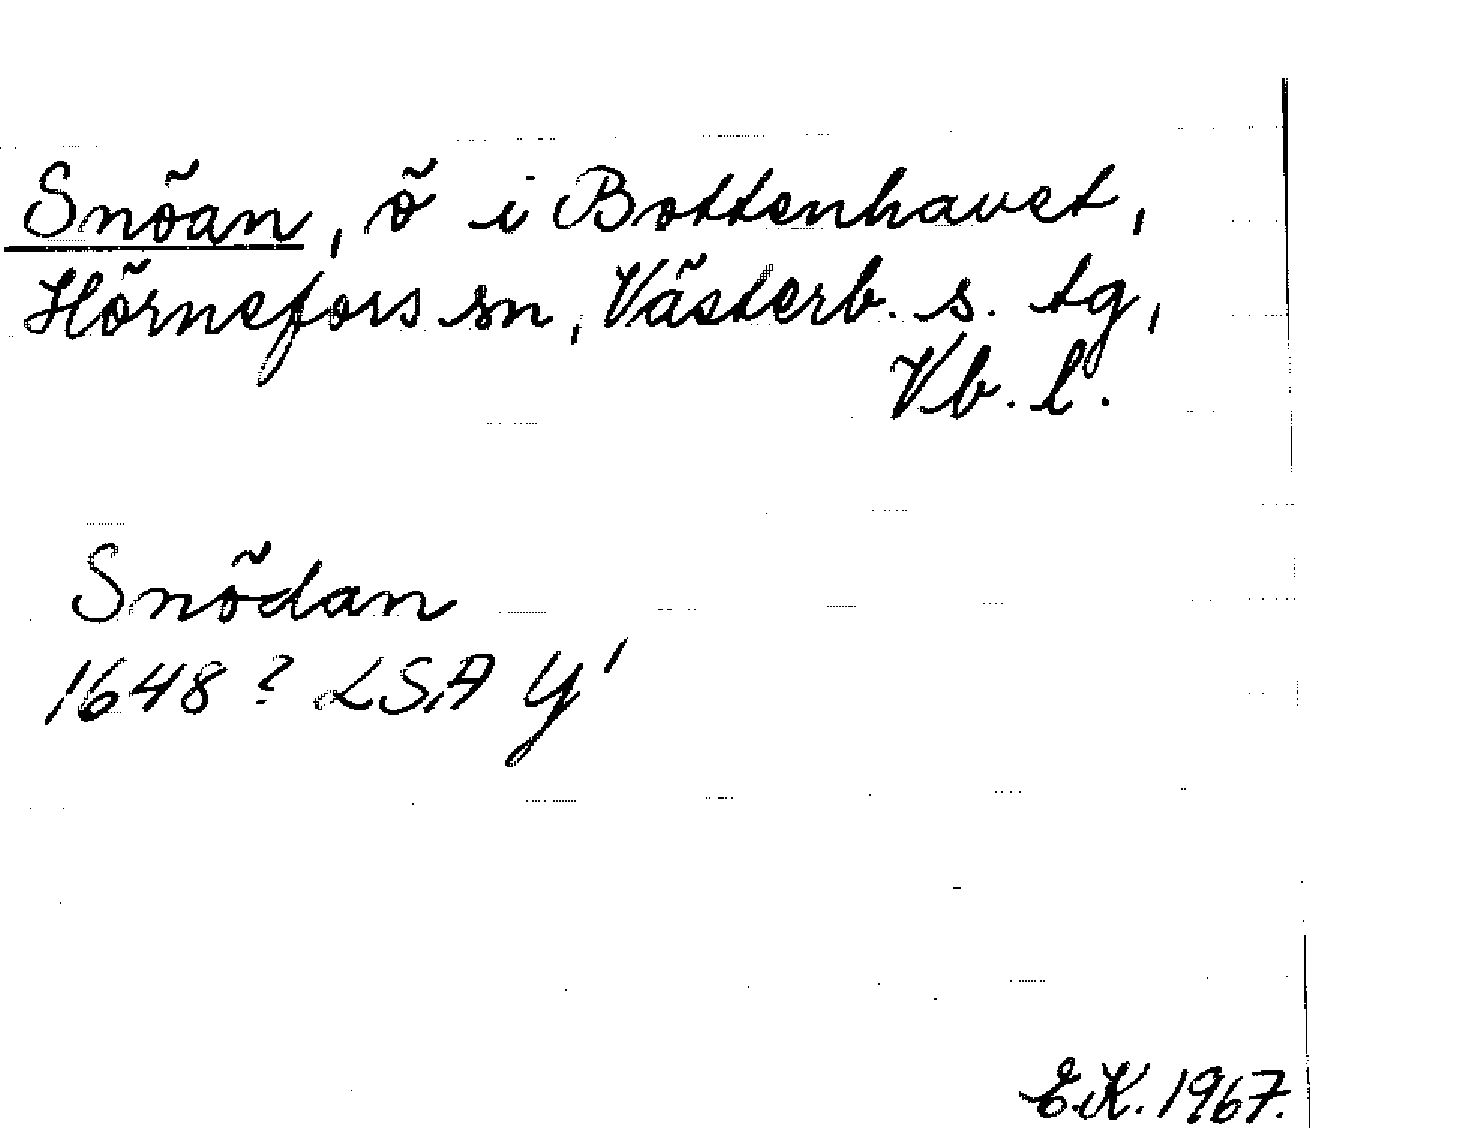 Snöan, ö i Bottenhavet,
Hörnefors sn, Västerb. s. tg,
Vb. l.
Snödan
1648? LSA Y'
E.K. 1967.